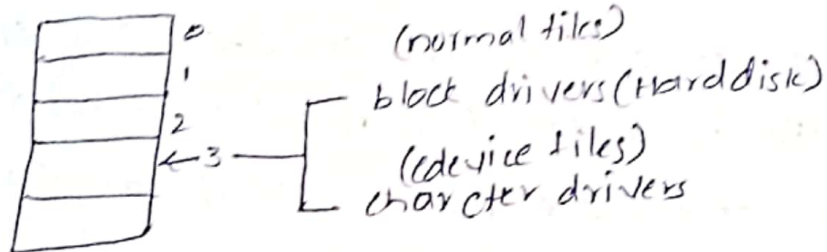 0
(normal files)
1
block drivers (Hard disk)
2
3
(cdevice files)
charcter drivers